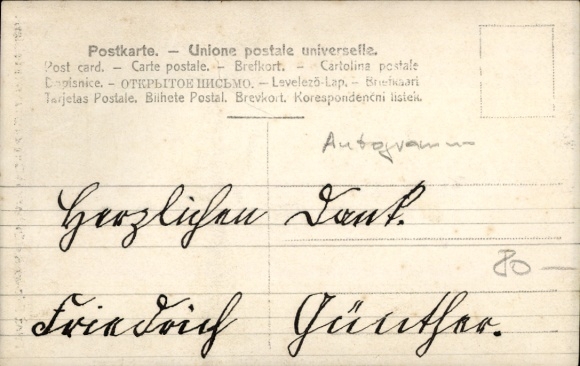 Postkarte. – Unione postale universelle.
Post card. – Carte postale. – Brefkort. – Cartolina postale
Dopisnice. – ОТКРЫТОЕ ПИСЬМО. – Levelező-Lap. – Briefkaart
Tarjetas Postale. Bilhete Postal. Brevkort. Korespondenčni listek.
Autogramm
Herzlichen Dank.
80 –
Friedrich Günther.